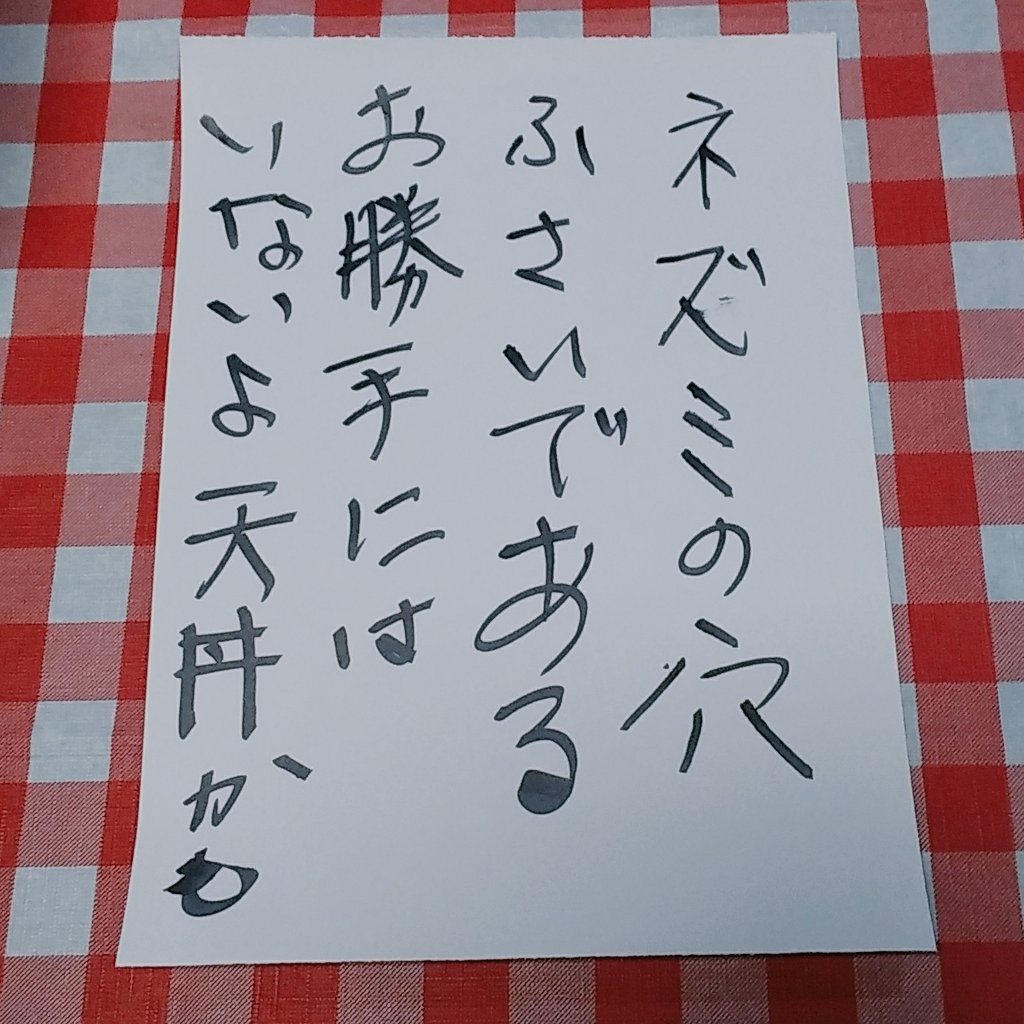 ネズミの穴
ふさいである
お勝手には
いないよ天井かも